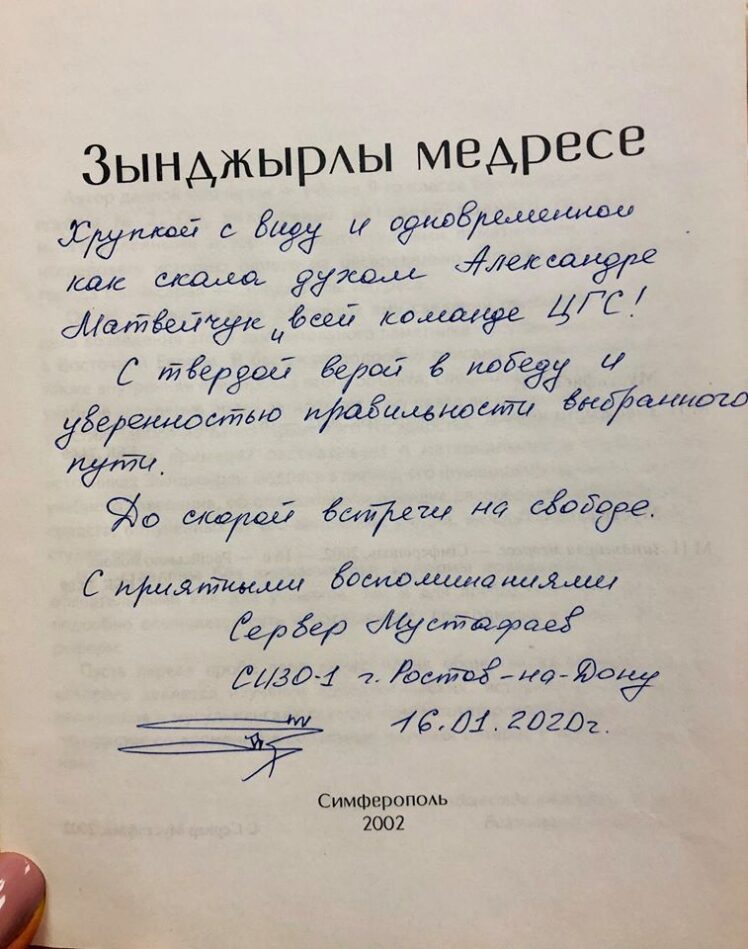 Зынджырлы медресе
Хрупкой с виду и одновременной
как скала духом Александре
Матвейчук и всей команде ЦГС!
С твердой верой в победу и
уверенностью правильности выбранного
пути.
До скорой встречи на свободе.
С приятными воспоминаниями
Сервер Мустафаев
СИЗО-1 г. Ростов-на-Дону
16.01.2020г.
Симферополь
2002